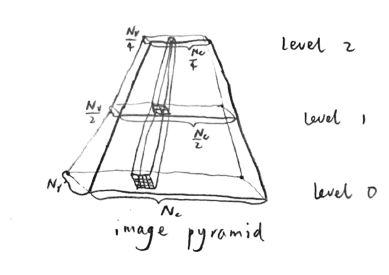 Nr/4
Nc/4
Level 2
Nr/2
Nc/2
Level 1
Nr
Nc
Level 0
image pyramid